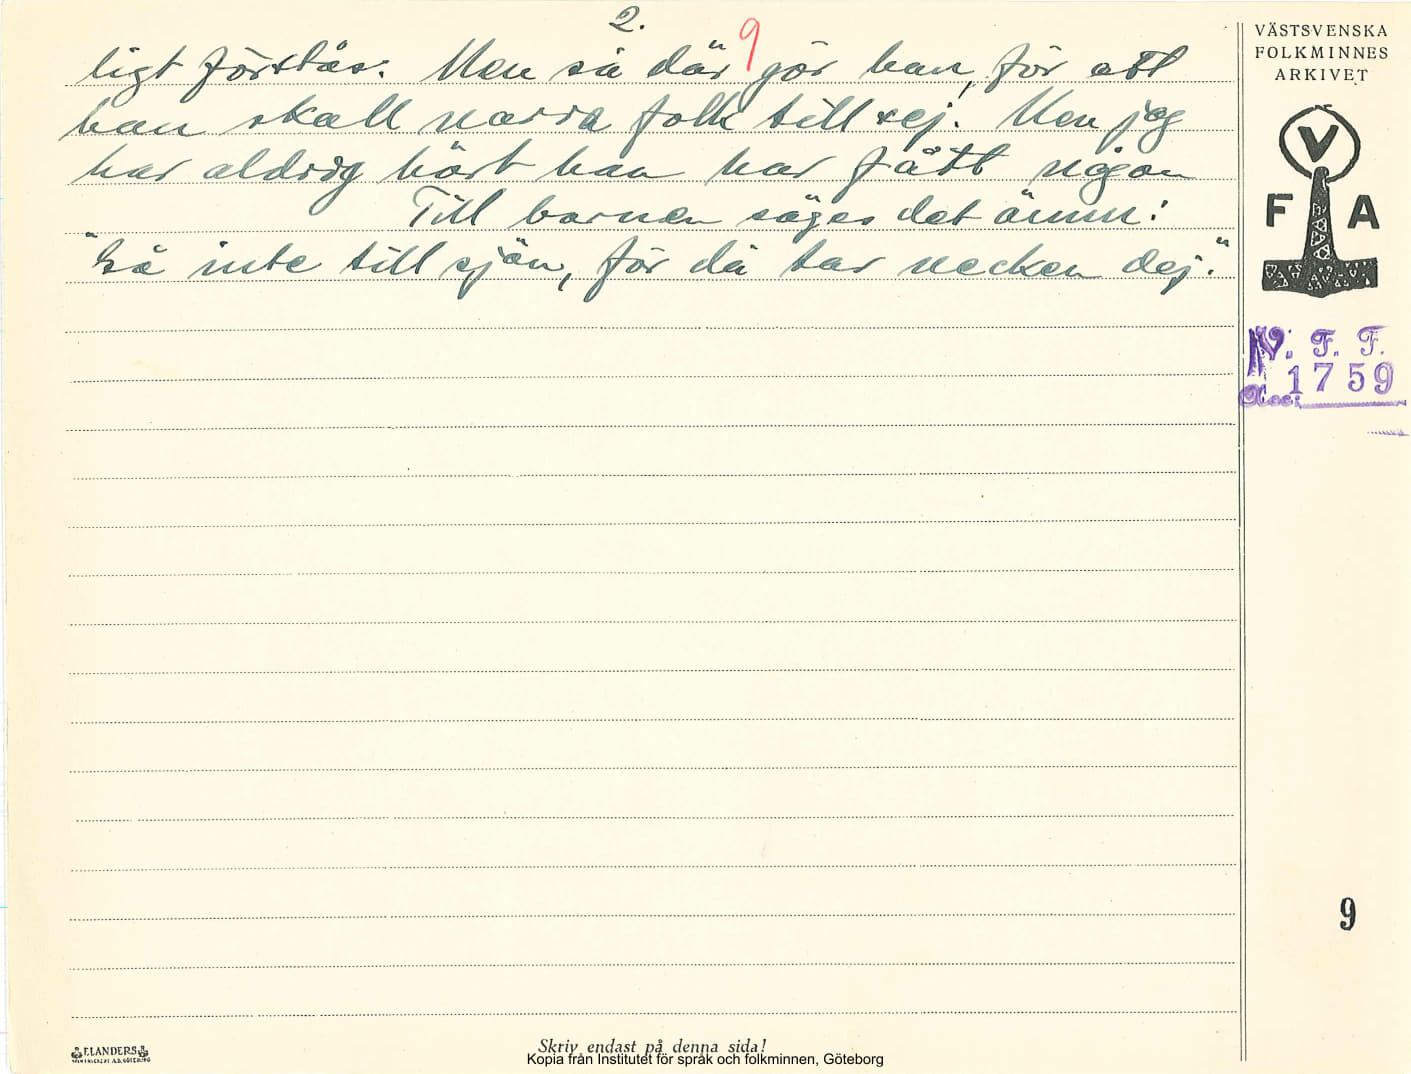 2.
9
ligt förstås. Men så där gör han, för att
han skall narra folk till sej. Men jag
har aldrig hört han har fått någon
Till barnen säges det ännu:
"Gå inte till sjön, för då tar necken dej."
VÄSTSVENSKA
FOLKMINNES
ARKIVET
V
F A
V. F. F.
Acc: 1759
9
ELANDERS
Skriv endast på denna sida!
Kopia från Institutet för språk och folkminnen, Göteborg